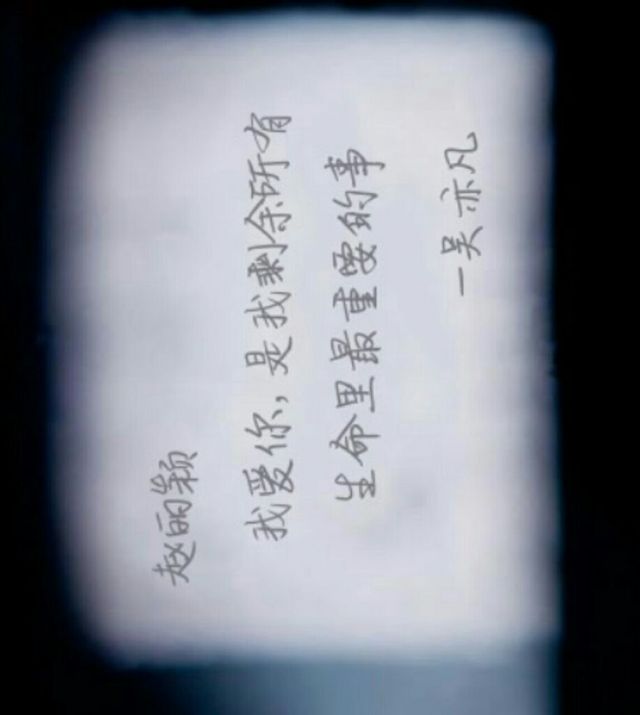 赵丽颖
我爱你，是我剩余所有
生命里最重要的事
一吴亦凡